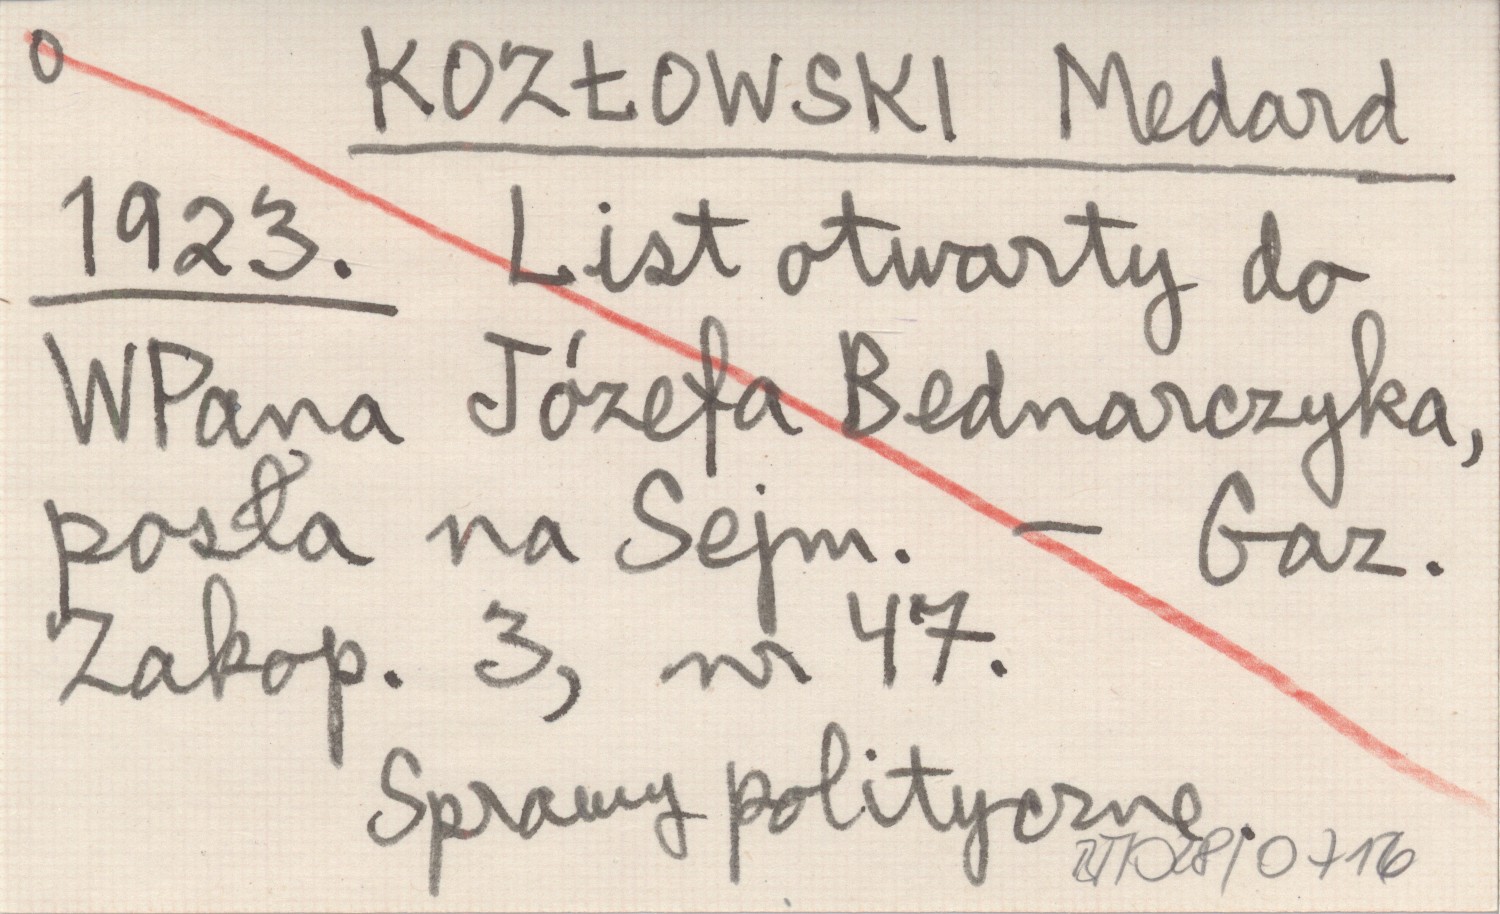 o KOZŁOWSKI Medard
1923. List otwarty do
WPana Józefa Bednarczyka,
posła na Sejm. — Gaz.
Zakop. 3, nr 47.
Sprawy polityczne.
0716